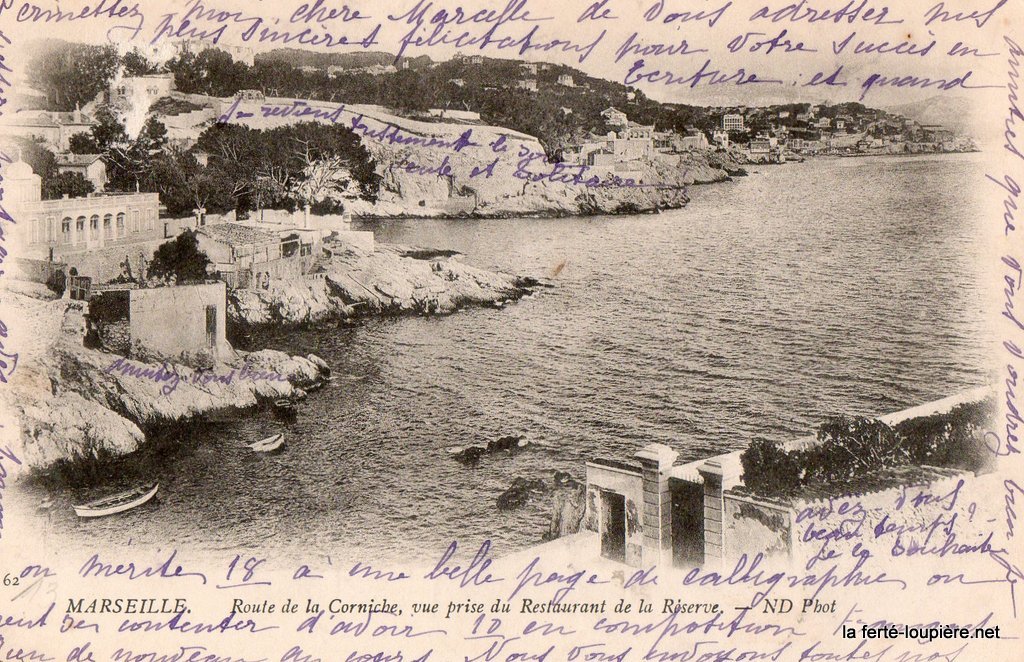 ermettez moi, chère Marcelle de vous adresser mes
plus sincères félicitations pour votre succès en
Ecriture, et quand
on mérite 18 à une belle page de calligraphie on
peut se contenter d'avoir 10 en composition
rien de nouveau au cours, Nous vous envoyons toutes nos
amitiés que vous voudrez bien
Je reviens tristement le
route et solitaire
amusez vous bien
avez vous
beau temps?
je le souhaite
62
MARSEILLE. Route de la Corniche, vue prise du Restaurant de la Réserve. — ND Phot
la ferté-loupière.net